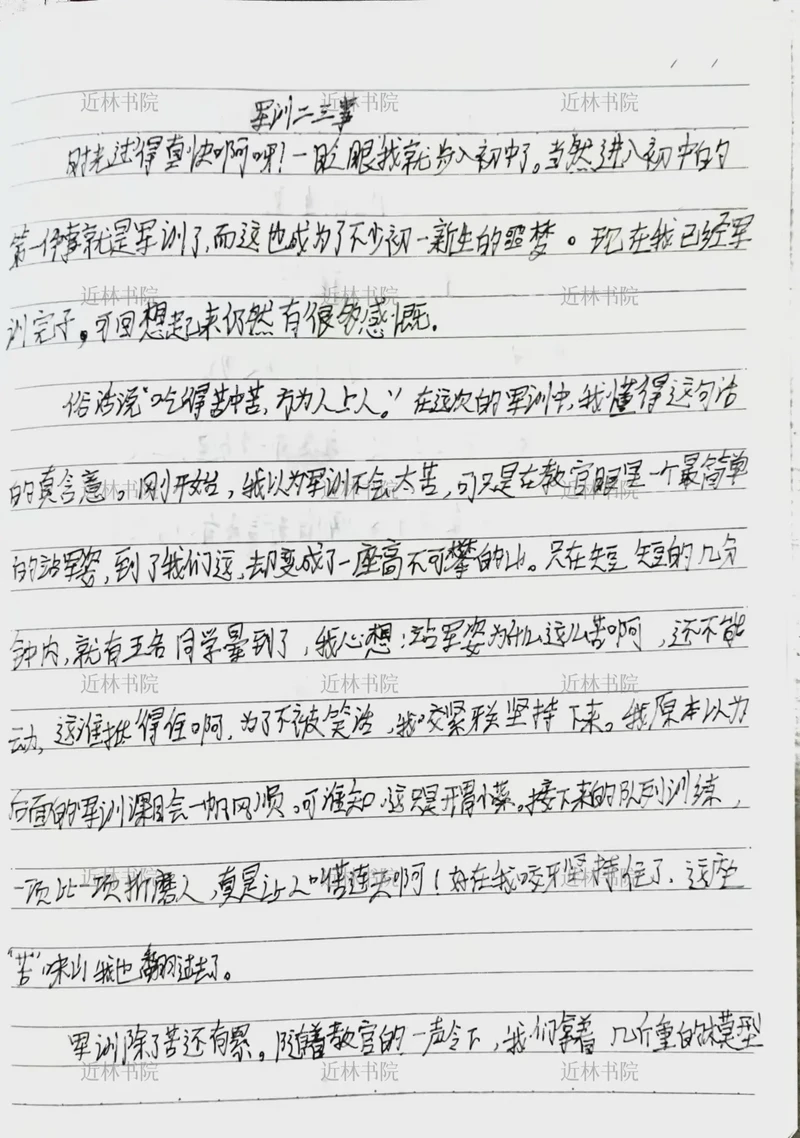 军训二三事
时光过得真快啊呀！一眨眼我就步入初中了。当然进入初中的
第一件事就是军训了，而这也成为了不少初一新生的噩梦。现在我已经军
训完了。可回想起来仍然有很多感慨。
俗话说“吃得苦中苦，方为人上人。”在这次的军训中，我懂得这句话
的真含意。刚开始，我以为军训不会太苦，可只是在教官眼里一个最简单
的站军姿，到了我们这，却变成了一座高不可攀的山。只在短短的几分
钟内，就有五名同学晕到了，我心想：站军姿为什么这么苦啊，还不能
动，这谁扯得住啊，为了不被笑话，我咬紧牙关坚持下来。我原本以为
后面的军训课目会一帆风顺。可谁知，这只是开胃小菜。接下来的队列训练，
一项比一项折磨人，真是让人叫苦连天啊！好在我咬牙坚持住了、这座
“苦”味山我也翻过去了。
军训除了苦还有累。随着教官的一声令下，我们拿着几斤重的模型
近林书院 近林书院 近林书院
近林书院 近林书院 近林书院
近林书院 近林书院 近林书院
近林书院 近林书院 近林书院
近林书院 近林书院 近林书院
近林书院 近林书院 近林书院